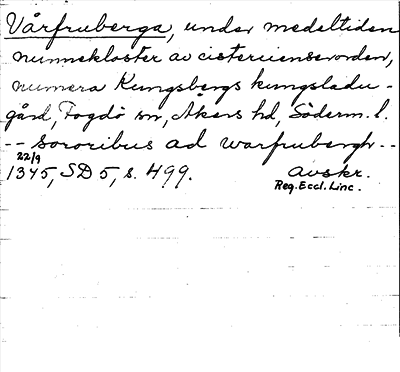 Vårfruberga, under medeltiden
nunnekloster av cistercienserorden,
numera Kungsbergs kungsladu-
gård, Fogdö sn, Åkers hd, Söderm. l.
-- sororibus ad warfrubergh --
22/9
1345, SD 5, s. 499. avskr.
Reg. Eccl. Linc.